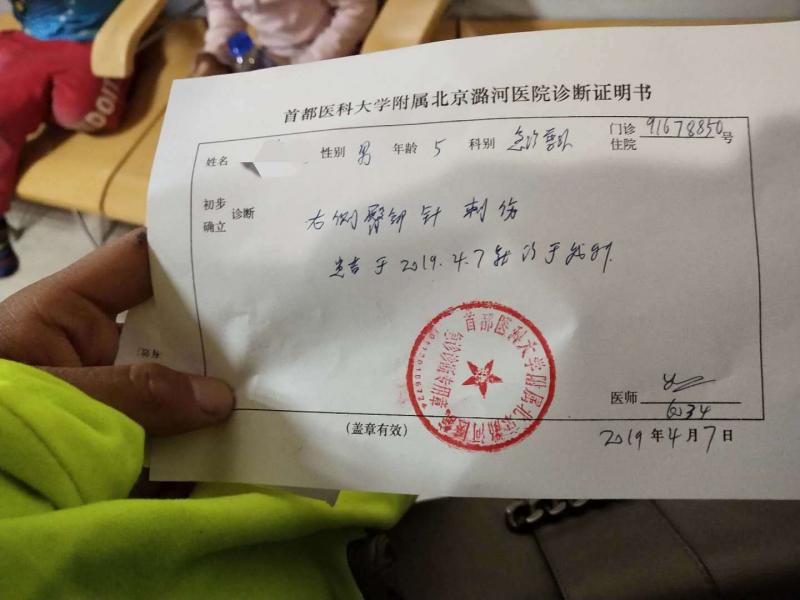 首都医科大学附属北京潞河医院诊断证明书
姓名 性别 男 年龄 5 科别 急诊医疗 门诊 住院 91678850 号
初步 确立 诊断
右侧臀部 针 刺伤
患者于 2019.4.7 就诊于我科.
(有效)
首都医科大学附属北京潞河医院
急诊诊断专用章
医师
6234
(盖章有效)
2019 年 4 月 7 日